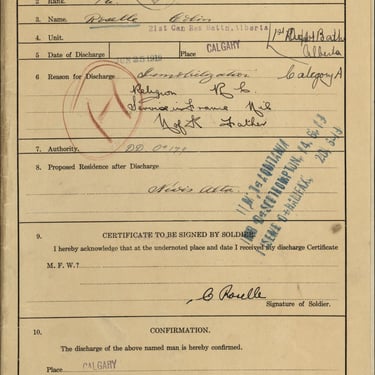 2. Rank Pte.
3. Name Roselle
4. Unit 21st Can Res Battn, Alberta 1st Depot Batt Alberta
5. Date of Discharge JUN 25 1919 Place CALGARY
6 Reason for Discharge Demobilization Category A
Religion R. C.
Service in France Nil
N of K Father
7. Authority.
8. Proposed Residence after Discharge
Nevis Alta.
9. CERTIFICATE TO BE SIGNED BY SOLDIER
I hereby acknowledge that at the undernoted place and date I received my discharge Certificate
M. F. W.?
C Roselle
Signature of Soldier.
10. CONFIRMATION.
The discharge of the above named man is hereby confirmed.
Place CALGARY